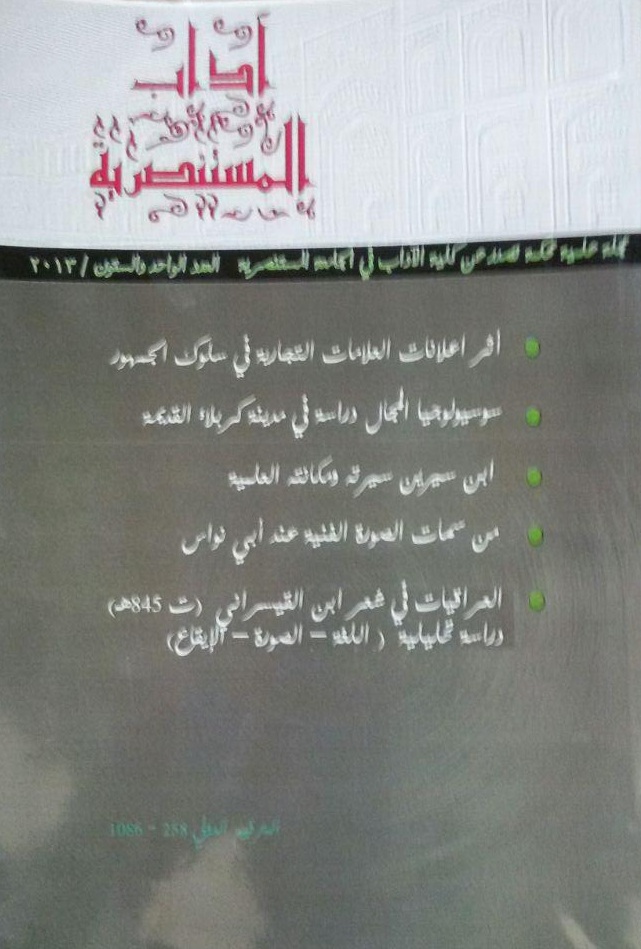 آداب
المستنصرية
مجلة علمية محكمة تصدر عن كلية الآداب في الجامعة المستنصرية العدد الواحد والستون / ٢٠١٣
أثر اعلانات العلامات التجارية في سلوك الجمهور
سوسيولوجيا المجال دراسة في مدينة كربلاء القديمة
ابن سيرين سيرته ومكانته العلمية
من سمات الصورة الفنية عند أبي نواس
العراقيات في شعر ابن القيسراني (ت 845هـ)
دراسة تحليلية ( اللغة – الصورة – الإيقاع)
الترقيم الدولي 258 - 1086